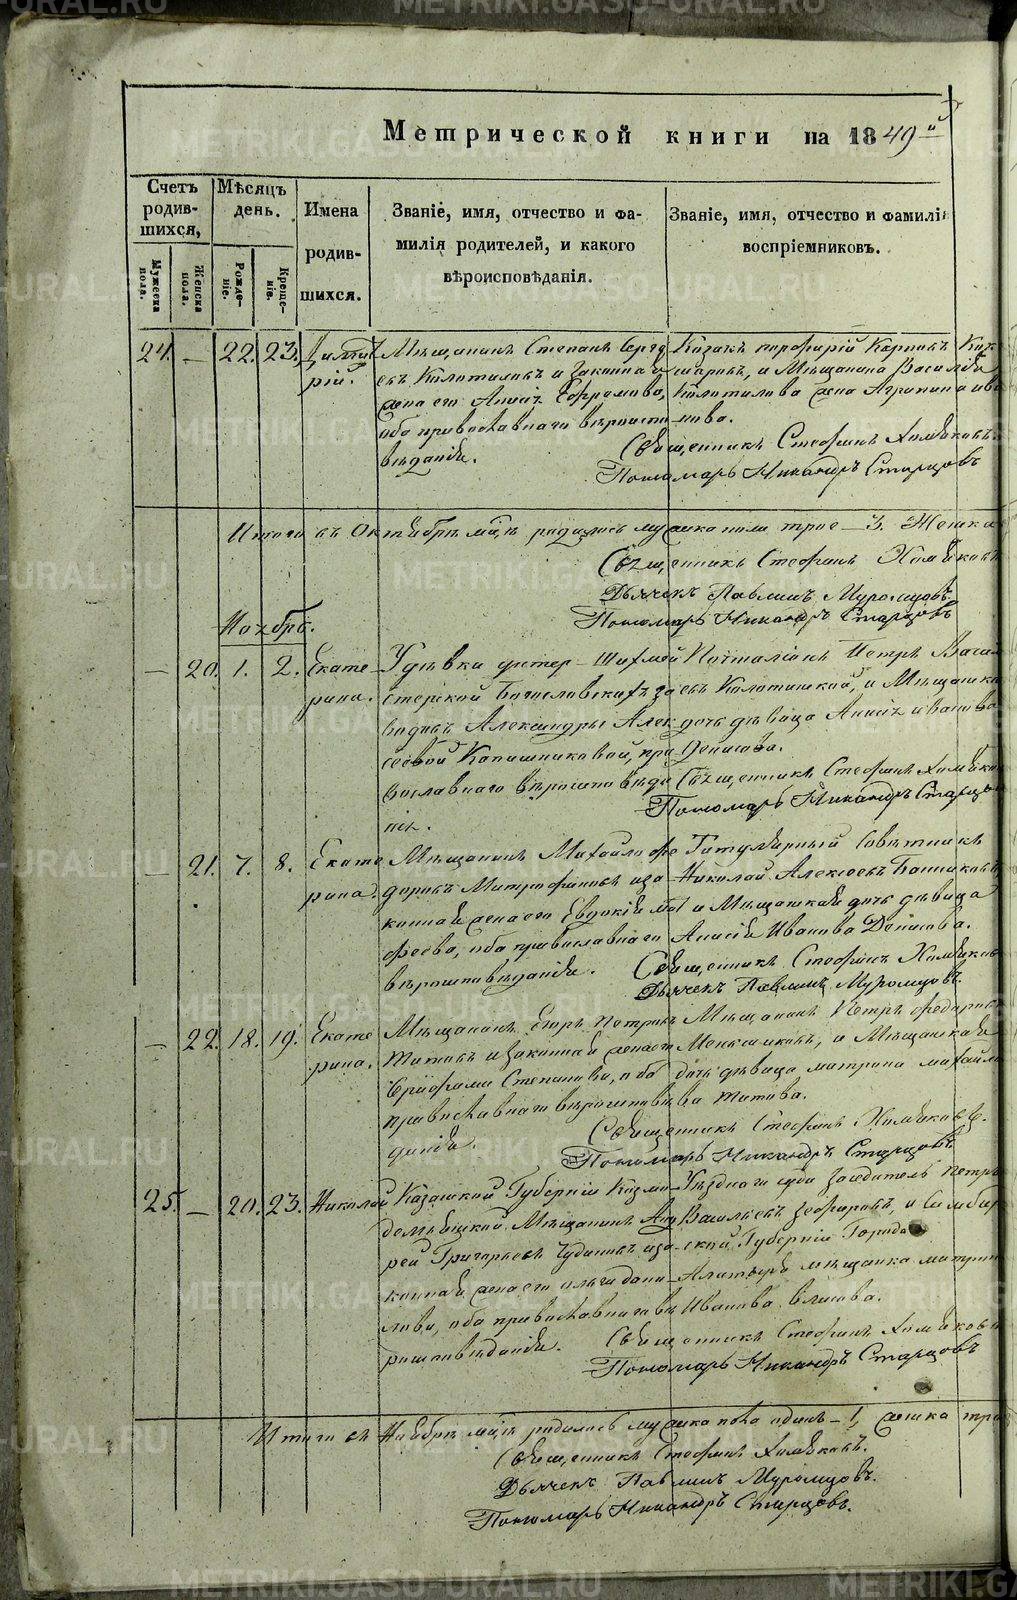 Метрической книги на 1849й
Счетъ родив-шихся,
Мужеска пола.
Женска пола.
Мѣсяцъ день.
Рожде-ніе.
Креще-нія.
Имена родив-шихся.
Званіе, имя, отчество и фа-
милія родителей, и какого
вѣроисповѣданія.
Званіе, имя, отчество и фамилія
воспріемниковъ.
24. — 22. 23. Димит
рій.
Мѣщанинъ Степанъ Сергѣ
евъ Колотиловъ и законная
жена его Анисія Ефремова,
оба православнаго вѣроиспо
вѣданія.
Казакъ Порфирій Карповъ
и Мѣщанина Василія
Колотилова жена Агрипина Ива
нова.
Священникъ Стефанъ Хомяковъ.
Пономарь Никандръ Старцовъ
Итого въ Октябрѣ м-цѣ родилось мужска пола трое — 3. Женска
Священникъ Стефанъ Хомяковъ
Дьячекъ Павлинъ Муромцовъ.
Пономарь Никандръ Старцовъ
Ноябрь.
— 20. 1. 2. Екате
рина.
У дѣвки
Богословскихъ за
водовъ Александры Алек
сѣевой Капишниковой, пра
вославнаго вѣроисповѣда
нія.
Почталіонъ Петръ Васил
и Мѣщанска
дочь дѣвица Анисія Иванова
Денисова.
Священникъ Стефанъ Хомяков
Пономарь Никандръ Старцов
— 21. 7. 8. Екате
рина.
Мѣщанинъ Михайло Фе
доровъ Митрофановъ и за
конная жена его Евдокія
оба православнаго
вѣроисповѣданія.
Титулярный Совѣтникъ
Николай Алексѣевъ
и Мѣщанская дочь дѣвица
Анисія Иванова Денисова.
Священникъ Стефанъ Хомяков
Дьячекъ Павлинъ Муромцовъ.
— 22. 18. 19. Екате
рина.
Мѣщанинъ Егоръ Петровъ
Титовъ и законная жена его
Степанова, оба
православнаго вѣроисповѣ
данія.
Мѣщанинъ Петръ Федоров
Меньшиковъ, и Мѣщанская
дочь дѣвица Матрона Михайло
ва Титова.
Священникъ Стефанъ Хомяковъ.
Пономарь Никандръ Старцовъ
25. — 20. 23. Николай
Казанской Губерніи Козмо
демьянской Мѣщанинъ Анд
рей Григорьевъ Чудиновъ и за
конная жена его Ольга Дани
лова, оба православнаго вѣ
роисповѣданія.
Уѣзднаго суда Засѣдатель Петръ
Васильевъ Зефировъ, и Симбир
ской Губерніи Города
Алатыря мѣщанка Матрон
Иванова Власова.
Священникъ Стефанъ Хомяковъ
Пономарь Никандръ Старцовъ
Итого въ Ноябрѣ м-цѣ родилось мужска пола одинъ — 1, женска три
Священникъ Стефанъ Хомяковъ.
Дьячекъ Павлинъ Муромцовъ.
Пономарь Никандръ Старцовъ.
METRIKI.GASU-URAL.RU